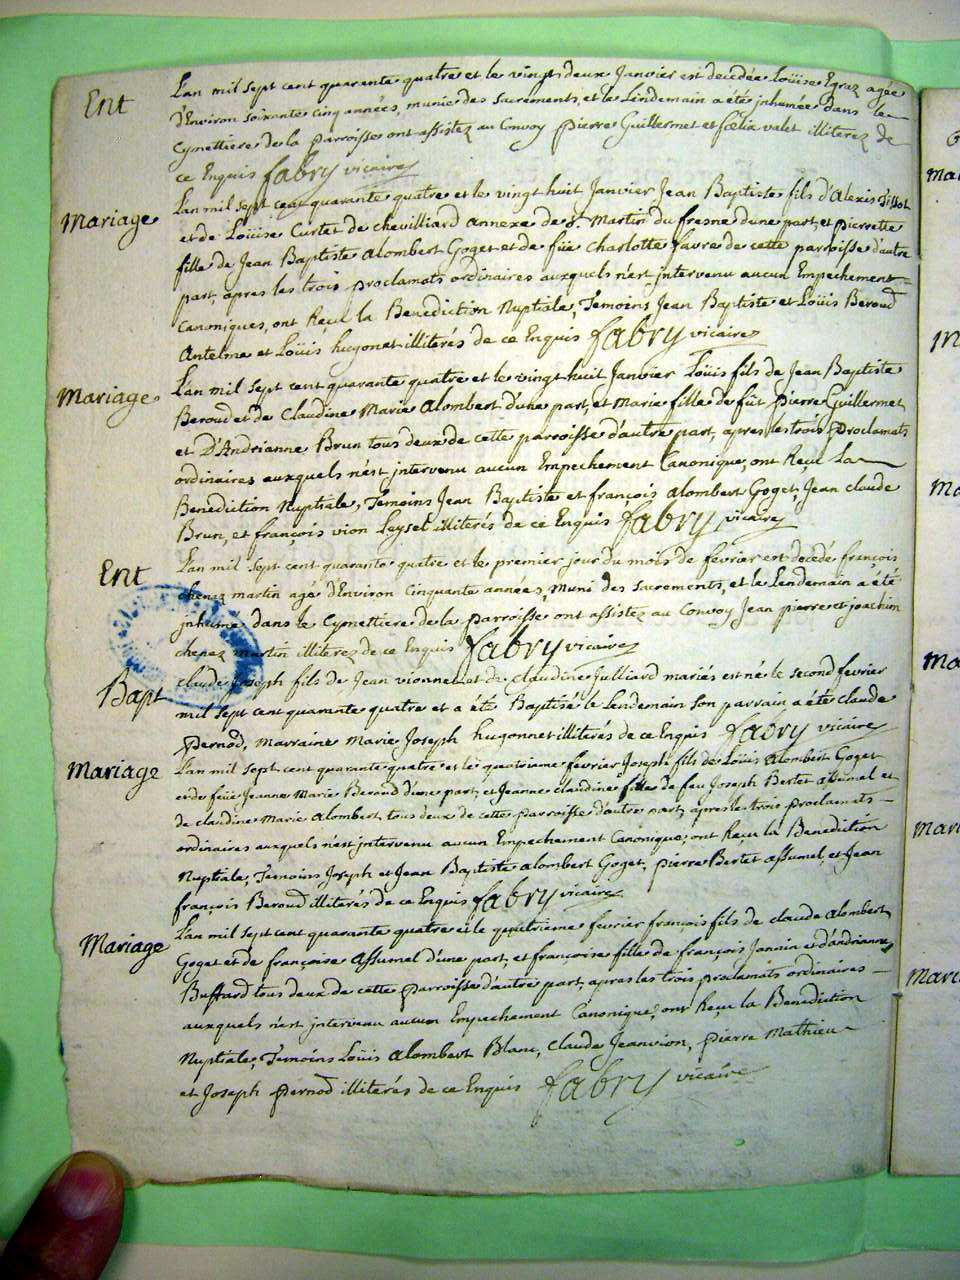 Ent
L'an mil sept cent quarante quatre et le vingt deux Janvier est decedée Loüise Egraz agée
d'Environ soixante cinq années, munie des sacrements, et le Lendemain a été inhumée dans le
Cymettiere de la parroisse ont assistez au Convoy pierre Guillermet et foelix valet illiterez de
ce Enquis fabry vicaire
Mariage
L'an mil sept cent quarante quatre et le vingt huit Janvier Jean Baptiste fils d'Alexis
et de Loüise Curtet de chevilliard annexe de st. Martin du fresne d'une part, et pierrette
fille de Jean Baptiste alombert Goget et de füe charlotte favre de cette parroisse d'autre
part, apres les trois proclamats ordinaires auxquels n'est jntervenu aucun Empechement
Canoniques, ont Reçu la Benediction Nuptiale, Temoins Jean Baptiste et Loüis Beroud
Antelme et Loüis hugonet illiterés de ce Enquis fabry vicaire
Mariage
L'an mil sept cent quarante quatre et le vingt huit Janvier Loüis fils de Jean Baptiste
Beroud et de Claudine Marie alombert d'une part, et Marie fille de füt pierre Guillermet
et D'Andrianne Brun tous deux de cette parroisse d'autre part, apres les trois proclamats
ordinaires auxquels n'est jntervenu aucun Empechement Canonique, ont Reçu La
Benediction Nuptiale, Temoins Jean Baptiste et françois alombert Goget, Jean claude
Brun, et françois vion Leyset illiterés de ce Enquis fabry vicaire
Ent
L'an mil sept cent quarante quatre et le premier jour du mois de fevrier est decedé françois
chenez martin agé d'Environ Cinquante années, Muni des sacrements, et le Lendemain a été
jnhumé dans le Cymettiere de la parroisse ont assistez au Convoy Jean pierre et joachim
chenez martin illiterez de ce Enquis fabry vicaire
Bapt
claude joseph fils de Jean vionnet et de claudine Julliard mariés est né le second fevrier
mil sept cent quarante quatre et a été Baptisé le Lendemain son parrain a été claude
pernod, marraine Marie Joseph hugonnet illiterés de ce Enquis fabry vicaire
Mariage
L'an mil sept cent quarante quatre et le quatrieme fevrier Joseph fils de Loüis alombert Goget
et de feüe Jeanne Marie Beroud d'une part, et Jeanne claudine fille de feu Joseph Bertet assumel et
de claudine Marie alombert tous deux de cette parroisse d'autre part, apres les trois proclamats
ordinaires auxquels n'est jntervenu aucun Empechement Canonique, ont Reçu la Benediction
Nuptiale, Temoins Joseph et Jean Baptiste alombert Goget, pierre Bertet assumel, et Jean
françois Beroud illiterés de ce Enquis fabry vicaire
Mariage
L'an mil sept cent quarante quatre et le quatrieme fevrier françois fils de claude alombert
Goget et de françoise assumel d'une part, et françoise fille de françois Jannin et d'andrianne
Buffard tous deux de cette parroisse d'autre part, apres les trois proclamats ordinaires
auxquels n'est jntervenu aucun Empechement Canonique, ont Reçu la Benediction
Nuptiale, Temoins Loüis alombert Blanc, Claude Jeanvion, pierre Mathieu
et Joseph pernod illiterés de ce Enquis fabry vicaire